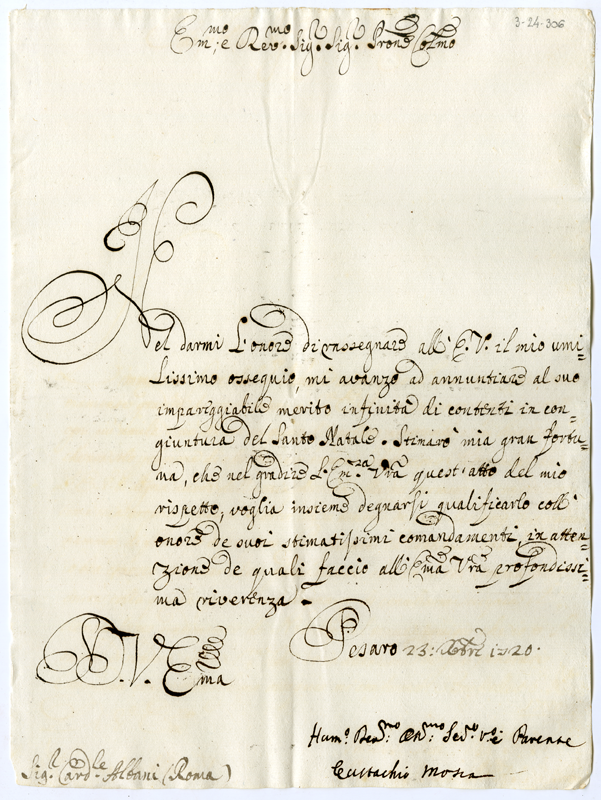 3-24-306
Em.mo e Rev.mo Sig.r Sig.r Prone Col.mo
Nel darmi l'onore di rassegnare all'E.V. il mio umi-
lissimo ossequio, mi avanzo ad annuntiare al suo
impareggiabile merito infinità di contenti in con-
giuntura del Santo Natale. Stimarò mia gran fortu-
na, che nel gradire l'Em.za Vrã quest'atto del mio
rispetto, voglia insieme degnarsi qualificarlo coll'
onore de suoi stimatissimi comandamenti, in atten-
zione de quali faccio all'Emã Vrã profondissi-
ma riverenza.
Pesaro 23: Xbre 1720.
D. V. Ema
Hum.o Dev.mo Obb.mo Ser.re e Parente
Eustachio Mosca
Sig.r Card.le Albani (Roma)